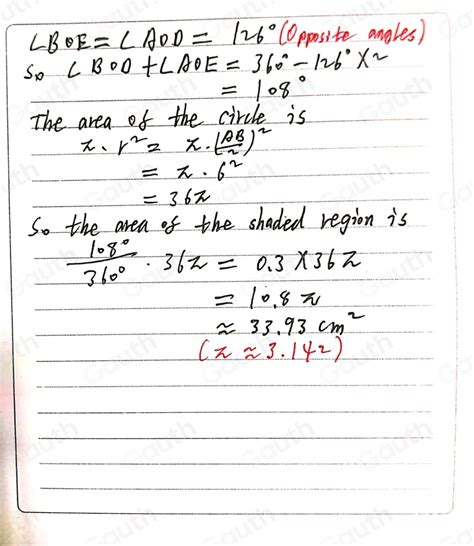 ∠BOE = ∠AOD = 126° (Opposite angles)
So ∠BOD + ∠AOE = 360° - 126° × 2
= 108°
The area of the circle is
π · r² = π · (AB/2)²
= π · 6²
= 36π
So the area of the shaded region is
108°/360° · 36π = 0.3 × 36π
= 10.8π
≈ 33.93 cm²
(π ≈ 3.142)